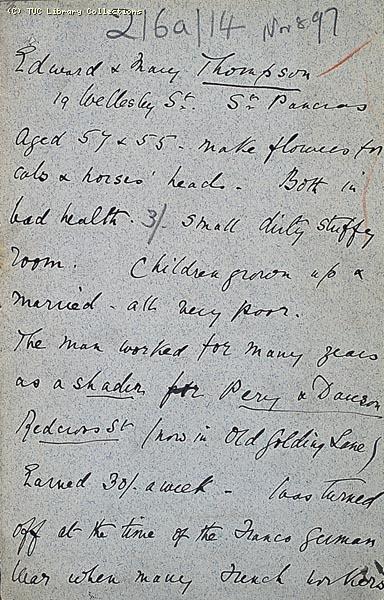 © TUC Library Collections
2/6a/14 Nov 8 97
Edward & Mary Thompson
19 Wellesley St. St Pancras
Aged 57 & 55 - make flowers for
cabs & horses' heads - Both in
bad health. 3/- small dirty stuffy
room. Children grown up &
married - all very poor.
The man worked for many years
as a shader for Perry & Dawson
Redcross St (now in Old Golding Lane)
Earned 30/- a week - was turned
off at the time of the Franco German
War when many French workers